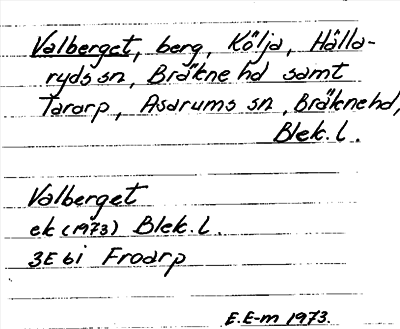 Valberget, berg, Kölja, Hälla-
ryds sn, Bräkne hd samt
Tararp, Asarums sn, Bräkne hd,
Blek. l.
Valberget
ek (1973) Blek. l.
3E 6i Froarp
E.E-m 1973.